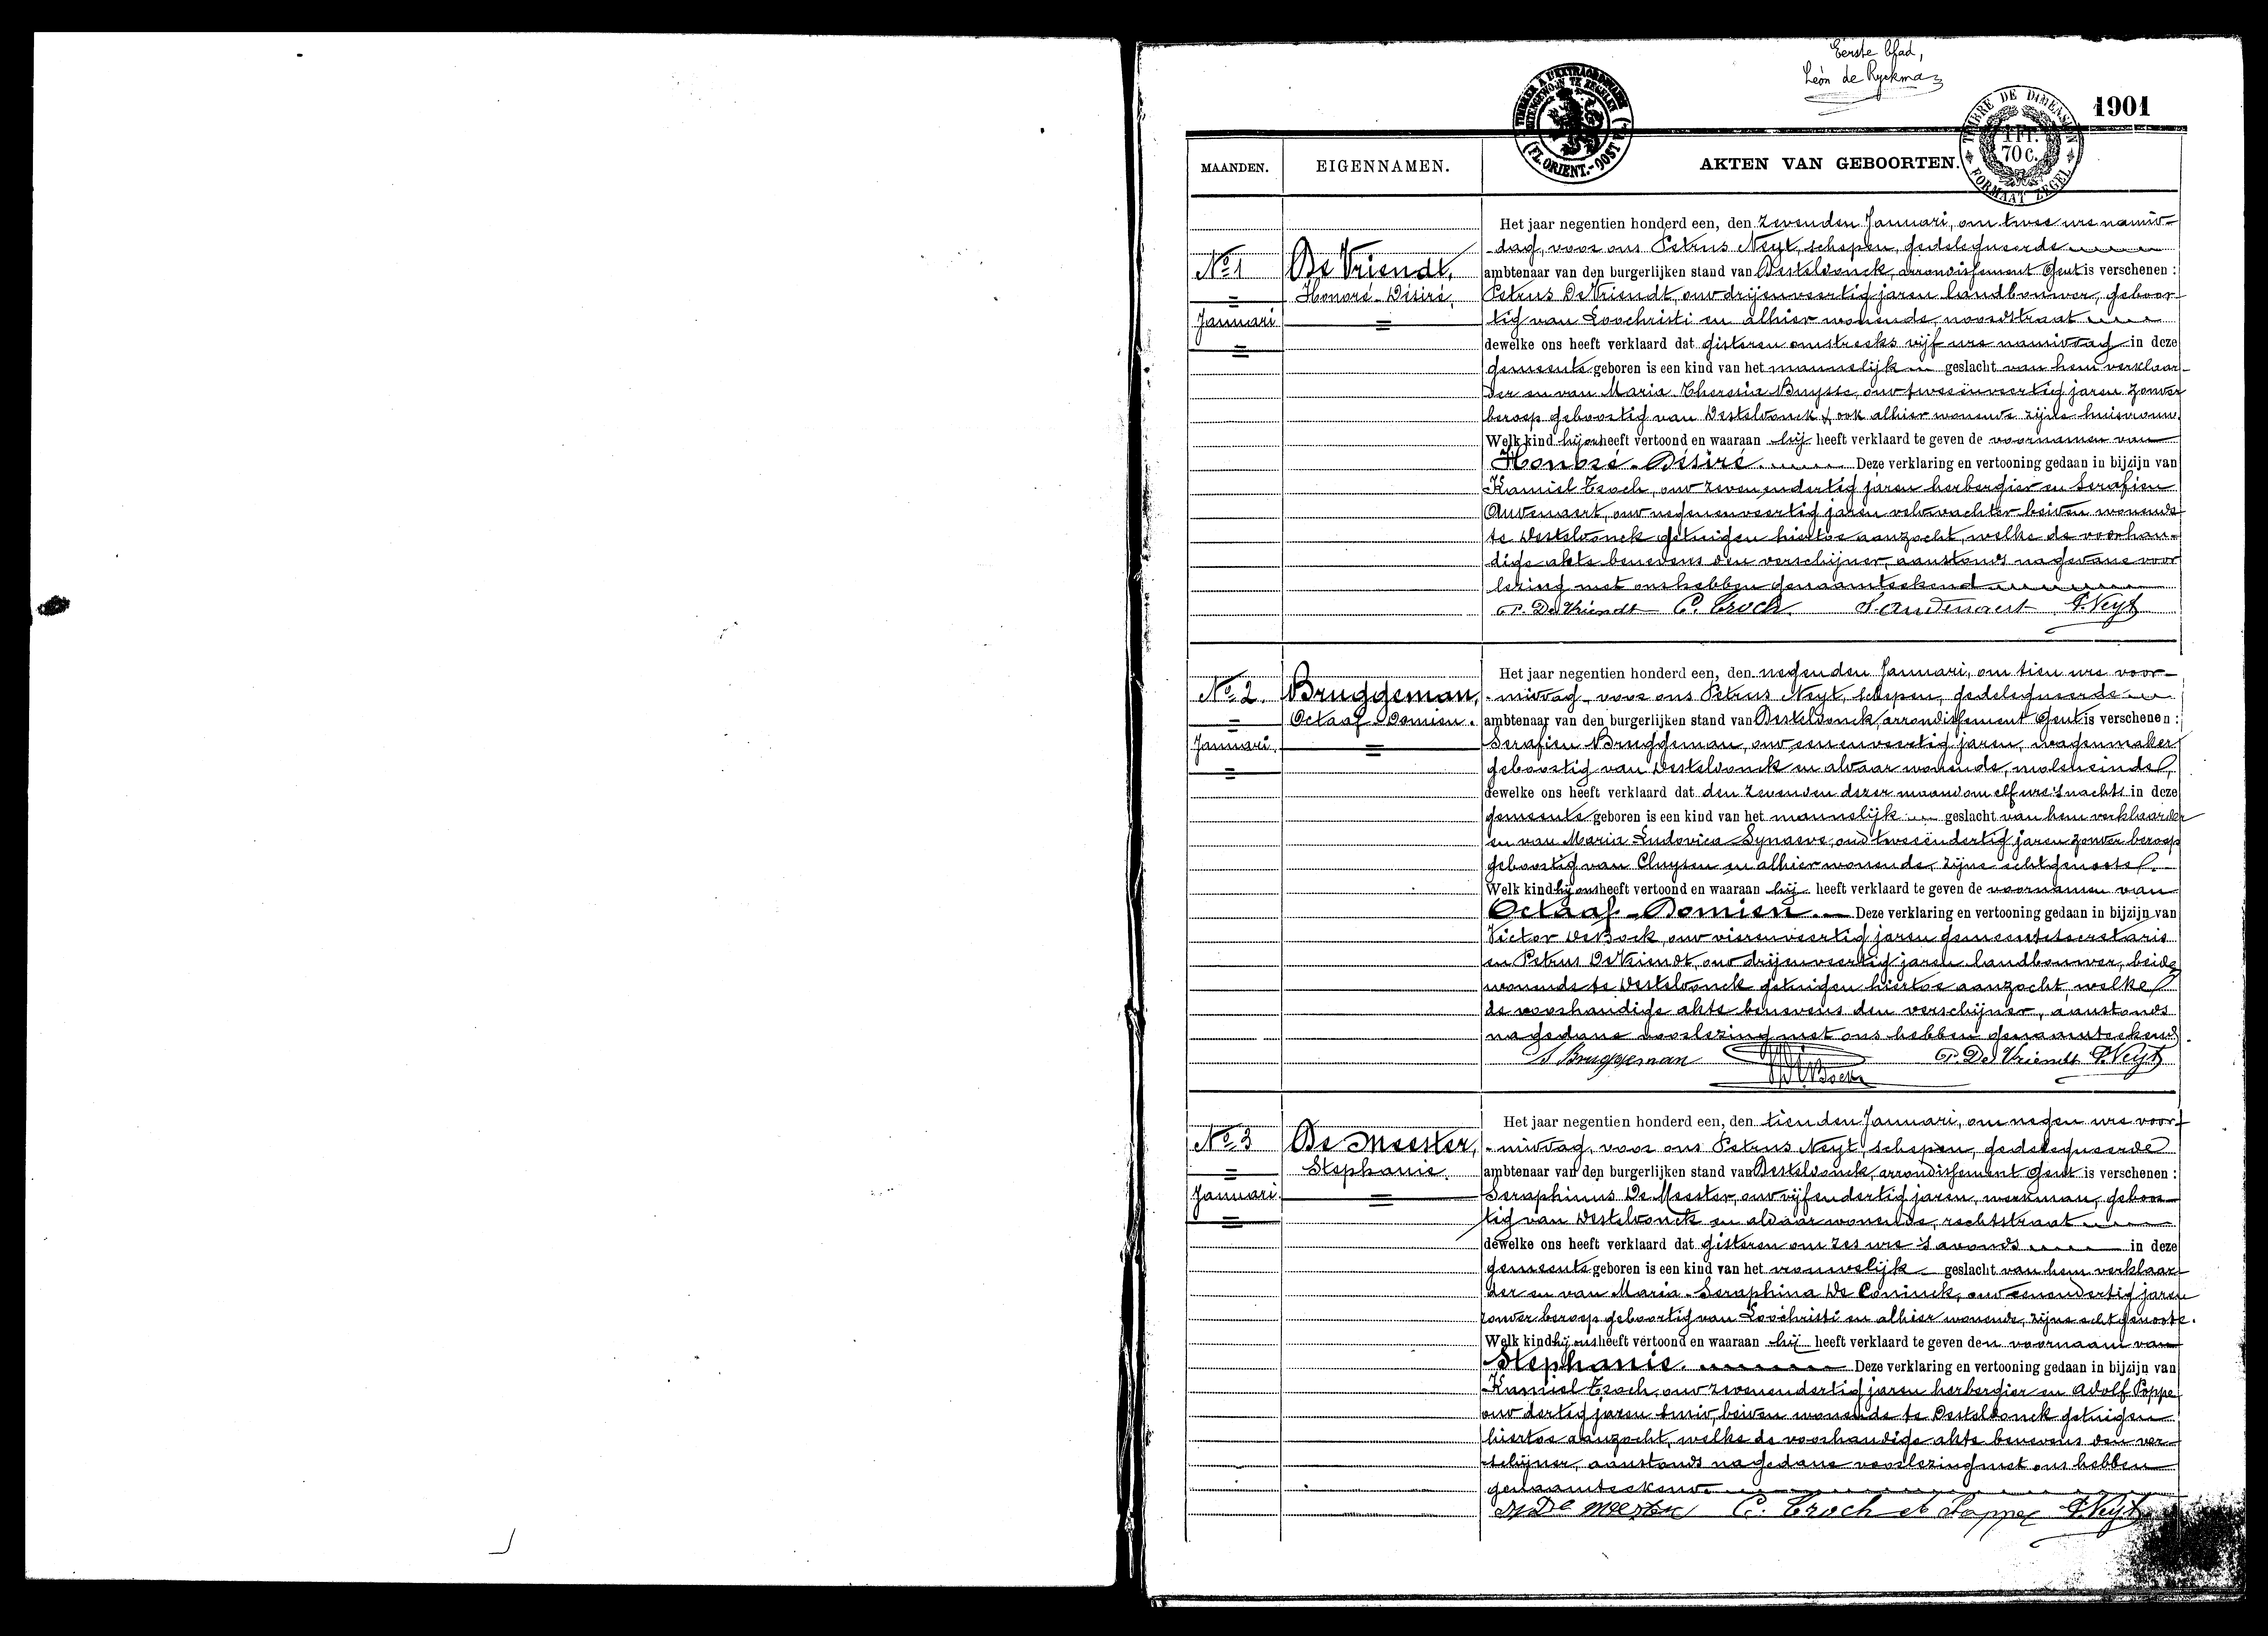 Eerste blad,
Léon de Ryckman
TIMBRE DE DIMENSION
1 FR.
70 c.
FORMAAT ZEGEL
1901
MAANDEN.
EIGENNAMEN.
AKTEN VAN GEBOORTEN.
(FL. ORIENT.-OOST VL.)
No 1
Januari
De Vriendt,
Honoré-Désiré.
Het jaar negentien honderd een, den zevenden Januari, om twee ure namid-
dag, voor ons Petrus Neyt, schepen, gedelegueerde
ambtenaar van den burgerlijken stand van Desteldonck, arrondissement Gent is verschenen :
Petrus De Vriendt, oud drijenveertig jaren landbouwer, geboor-
tig van Loochristi en alhier wonende, noordstraat
dewelke ons heeft verklaard dat gisteren omstreeks vijf ure namiddag in deze
gemeente geboren is een kind van het mannelijk geslacht van hem verklaar-
der en van Maria Theresia Buysse, oud tweeënveertig jaren zonder
beroep geboortig van Desteldonck & ook alhier wonende zijne huisvrouw.
Welk kind hij ons heeft vertoond en waaraan hij heeft verklaard te geven de voornamen van
Honoré-Désiré. Deze verklaring en vertooning gedaan in bijzijn van
Kamiel Troch, oud zevenendertig jaren herbergier en Serafien
Audenaert, oud negenenveertig jaren veldwachter beiden wonende
te Desteldonck getuigen hiertoe aanzocht, welke de voorhan-
dige akte benevens den verschijner, aanstonds na gedane voor
lezing met ons hebben genaamteekend
P. De Vriendt C. Troch. S. Audenaert P. Neyt
No 2.
Januari.
Bruggeman,
Octaaf-Domien.
Het jaar negentien honderd een, den negenden Januari, om tien ure voor-
middag voor ons Petrus Neyt, schepen, gedelegueerde
ambtenaar van den burgerlijken stand van Desteldonck, arrondissement Gent is verschenen :
Serafien Bruggeman, oud eenenveertig jaren, wagenmaker
geboortig van Desteldonck en aldaar wonende, moleneinde,
dewelke ons heeft verklaard dat den zevenden dezer maand om elf ure 's nachts in deze
gemeente geboren is een kind van het mannelijk geslacht van hem verklaarder
en van Maria Ludovica Synaeve, oud tweeëndertig jaren zonder beroep
geboortig van Cluysen en alhier wonende, zijne echtgenoote.
Welk kind hij ons heeft vertoond en waaraan hij heeft verklaard te geven de voornamen van
Octaaf-Domien. Deze verklaring en vertooning gedaan in bijzijn van
Victor De Bock, oud vierenveertig jaren gemeentesecretaris
en Petrus De Vriendt, oud drijenveertig jaren landbouwer, beide
wonende te Desteldonck getuigen hiertoe aanzocht, welke
de voorhandige akte benevens den verschijner, aanstonds
na gedane voorlezing met ons hebben genaamteekend
S Bruggeman De Bock P. De Vriendt P. Neyt
No 3
Januari.
De Meester,
Stephanie.
Het jaar negentien honderd een, den tienden Januari, om negen ure voor-
middag, voor ons Petrus Neyt, schepen, gedelegueerde
ambtenaar van den burgerlijken stand van Desteldonck, arrondissement Gent is verschenen :
Seraphinus De Meester, oud vijfendertig jaren, werkman, geboor-
tig van Desteldonck en aldaar wonende, rechtstraat
dewelke ons heeft verklaard dat gisteren om zes ure 's avonds in deze
gemeente geboren is een kind van het vrouwelijk geslacht van hem verklaar-
der en van Maria-Seraphina De Coninck, oud eenendertig jaren
zonder beroep geboortig van Loochristi en alhier wonende, zijne echtgenoote.
Welk kind hij ons heeft vertoond en waaraan hij heeft verklaard te geven den voornaam van
Stephanie. Deze verklaring en vertooning gedaan in bijzijn van
Kamiel Troch, oud zevenendertig jaren herbergier en Adolf Poppe
oud dertig jaren smid, beiden wonende te Desteldonck getuigen
hiertoe aanzocht, welke de voorhandige akte benevens den ver-
schijner, aanstonds na gedane voorlezing met ons hebben
genaamteekend.
De Meester C. Troch A Poppe P. Neyt